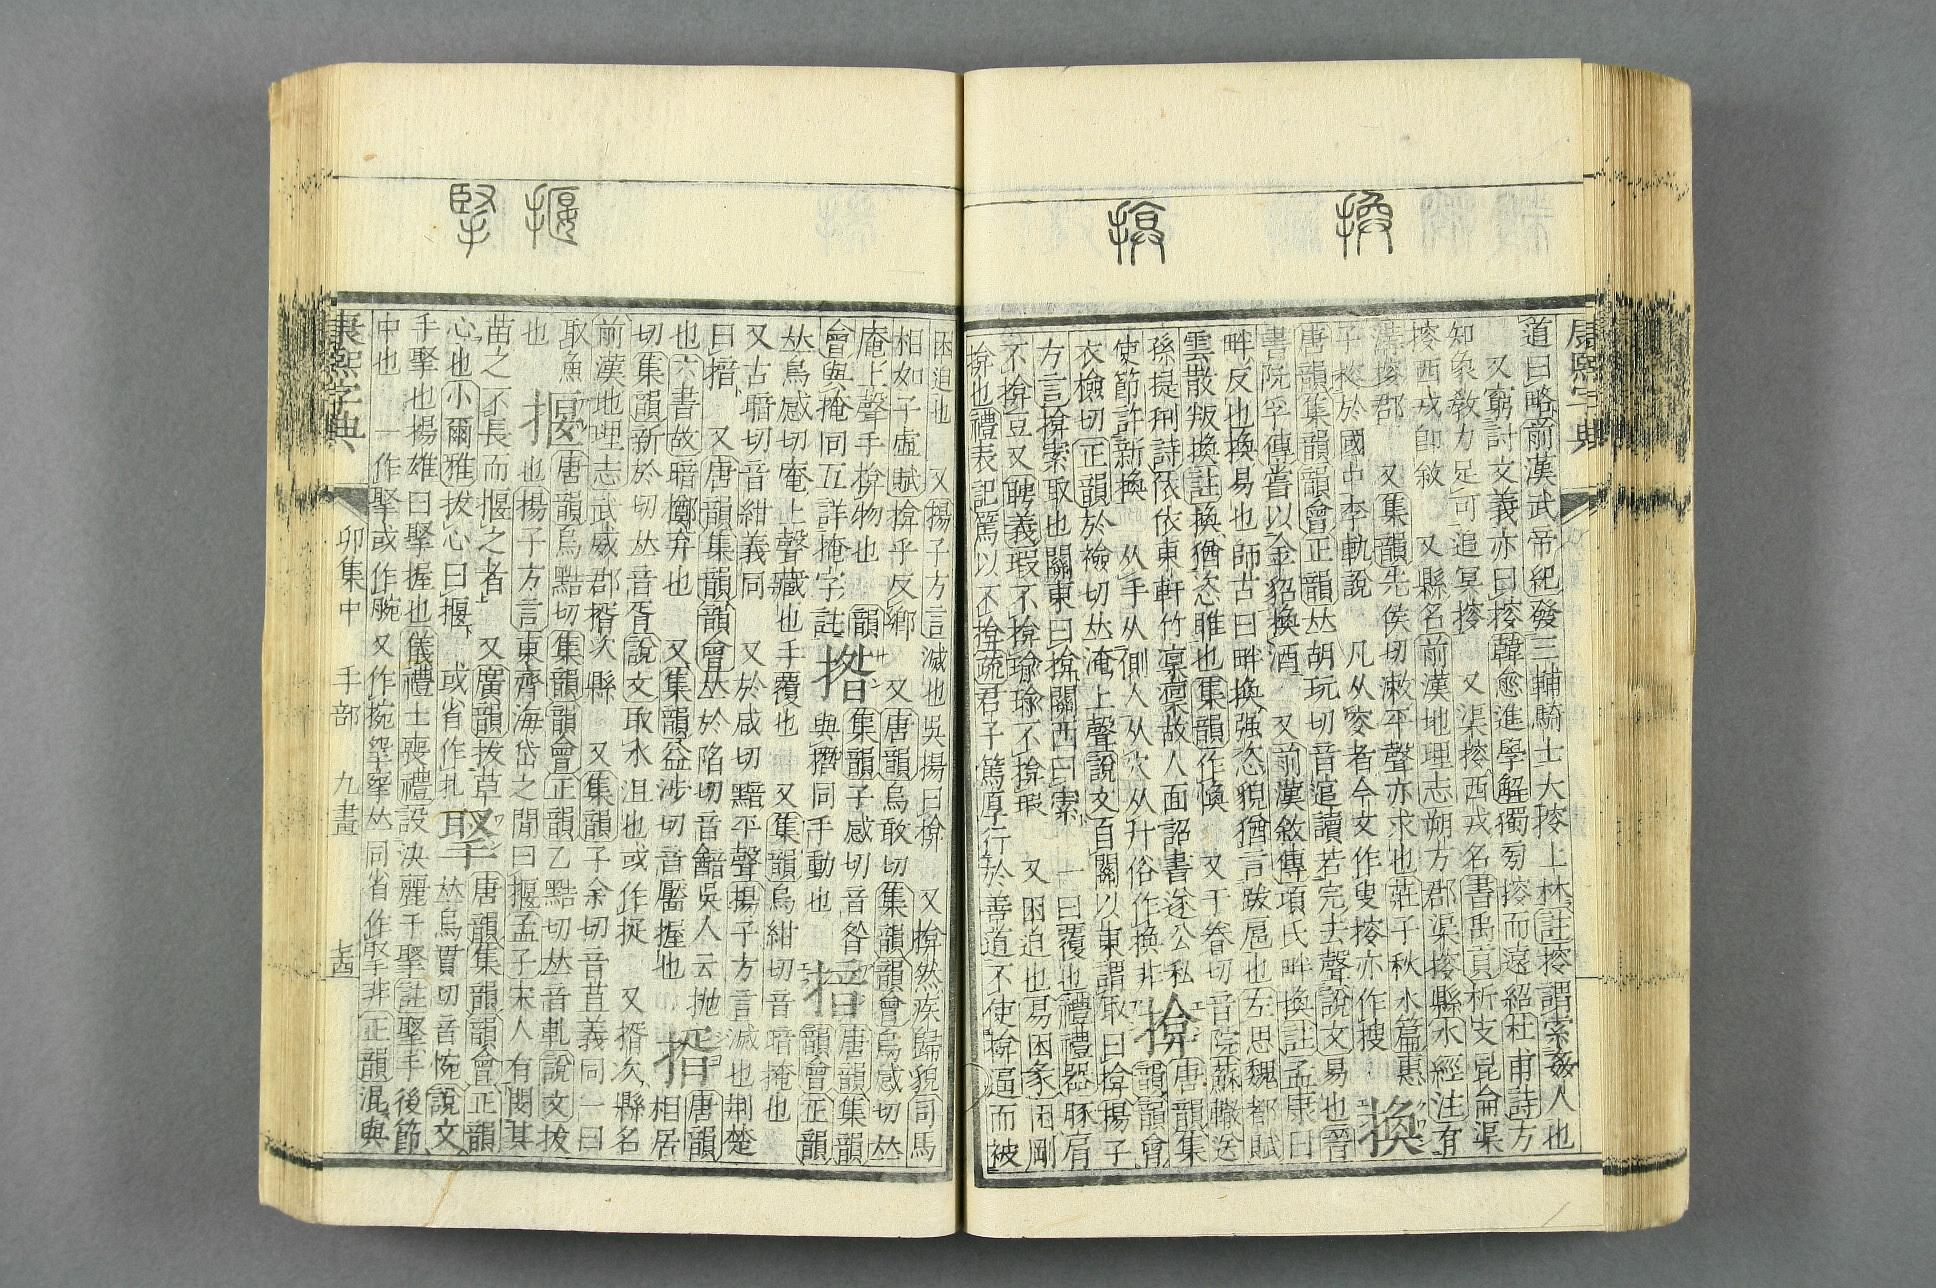 換
揜
揠
掔
康熙字典
道曰略前漢武帝紀發三輔騎士大搜上林註搜謂索姦人也
又窮討文義亦曰搜韓愈進學解獨旁搜而遠紹杜甫詩方
知象敎力足可追冥搜 又渠搜西戎名書禹貢析支昆侖渠
搜西戎卽敘 又縣名前漢地理志朔方郡渠搜縣水經注有
渠搜郡 又集韻先侯切漱平聲亦求也莊子秋水篇惠
子搜於國中李軌說 凡从叜者今文作叟搜亦作搜 換
唐韻集韻韻會正韻𠀤胡玩切音逭讀若完去聲說文易也晉
書阮孚傳嘗以金貂換酒 又前漢敘傳項氏畔換註孟康曰
畔反也換易也師古曰畔換强恣貌猶言跋扈也左思魏都賦
雲散叛換註換猶恣睢也集韻作愌 又于眷切音院蘇轍送
孫提刑詩依依東軒竹凜凜故人面詔書遂公私
使節許新換 从手从側人从穴从廾俗作換非 揜 唐韻集
韻韻會
衣檢切正韻於檢切𠀤淹上聲說文自關以東謂取曰揜揚子
方言揜索取也關東曰揜關西曰索 一曰覆也禮禮器豚肩
不揜豆又聘義瑕不揜瑜瑜不揜瑕 又困迫也易困彖困剛
揜也禮表記篤以不揜疏君子篤厚行於善道不使揜逼而被
困迫也 又揚子方言滅也吳揚曰揜 又揜然疾歸貌司馬
相如子虛賦揜乎反鄉 又唐韻烏敢切集韻韻會烏感切𠀤
庵上聲手揜物也 韻
會與掩同互詳掩字註 揝 集韻子感切音昝
與撍同手動也 揞 唐韻集
韻韻會正韻
𠀤烏感切庵上聲藏也手覆也 又集韻烏紺切音暗掩也
又古暗切音紺義同 又於咸切黯平聲揚子方言滅也荆楚
曰揞 又唐韻集韻韻會𠀤於陷切音𪑓吳人云抛
也六書故暗擲弃也 又集韻益涉切音魘握也 揟 唐韻
相居
切集韻新於切𠀤音胥說文取水沮也或作挔 又揟次縣名
前漢地理志武威郡揟次縣 又集韻子余切音苴義同一曰
取魚
也 揠 唐韻烏黠切集韻韻會正韻乙黠切𠀤音軋說文拔
也揚子方言東齊海岱之閒曰揠孟子宋人有閔其
苗之不長而揠之者 又廣韻拔草
心也小爾雅拔心曰揠 或省作扎 掔 唐韻集韻韻會正韻
𠀤烏貫切音惋說文
手掔也揚雄曰掔握也儀禮士喪禮設決麗于掔註掔手後節
中也 一作掔或作腕又作捥𢯲𢮘𠀤同省作掔非正韻混與
康熙字典
卯集中 手部 九畫